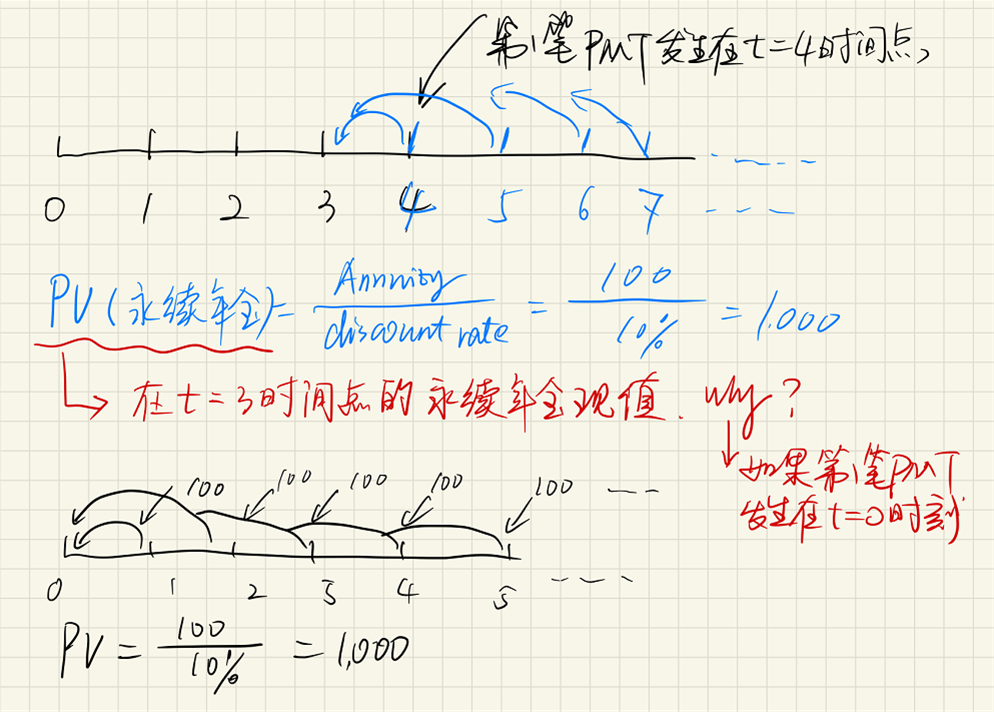 第1笔PMT发生在t=4时间点,
0 1 2 3 4 5 6 7 ----
PV(永续年金)= Annuity / discount rate = 100 / 10% = 1,000
在t=3时间点的永续年金现值. Why?
如果第1笔PMT
发生在t=0时刻
100 100 100 100 100 ---
0 1 2 3 4 5 ----
PV = 100 / 10% = 1,000